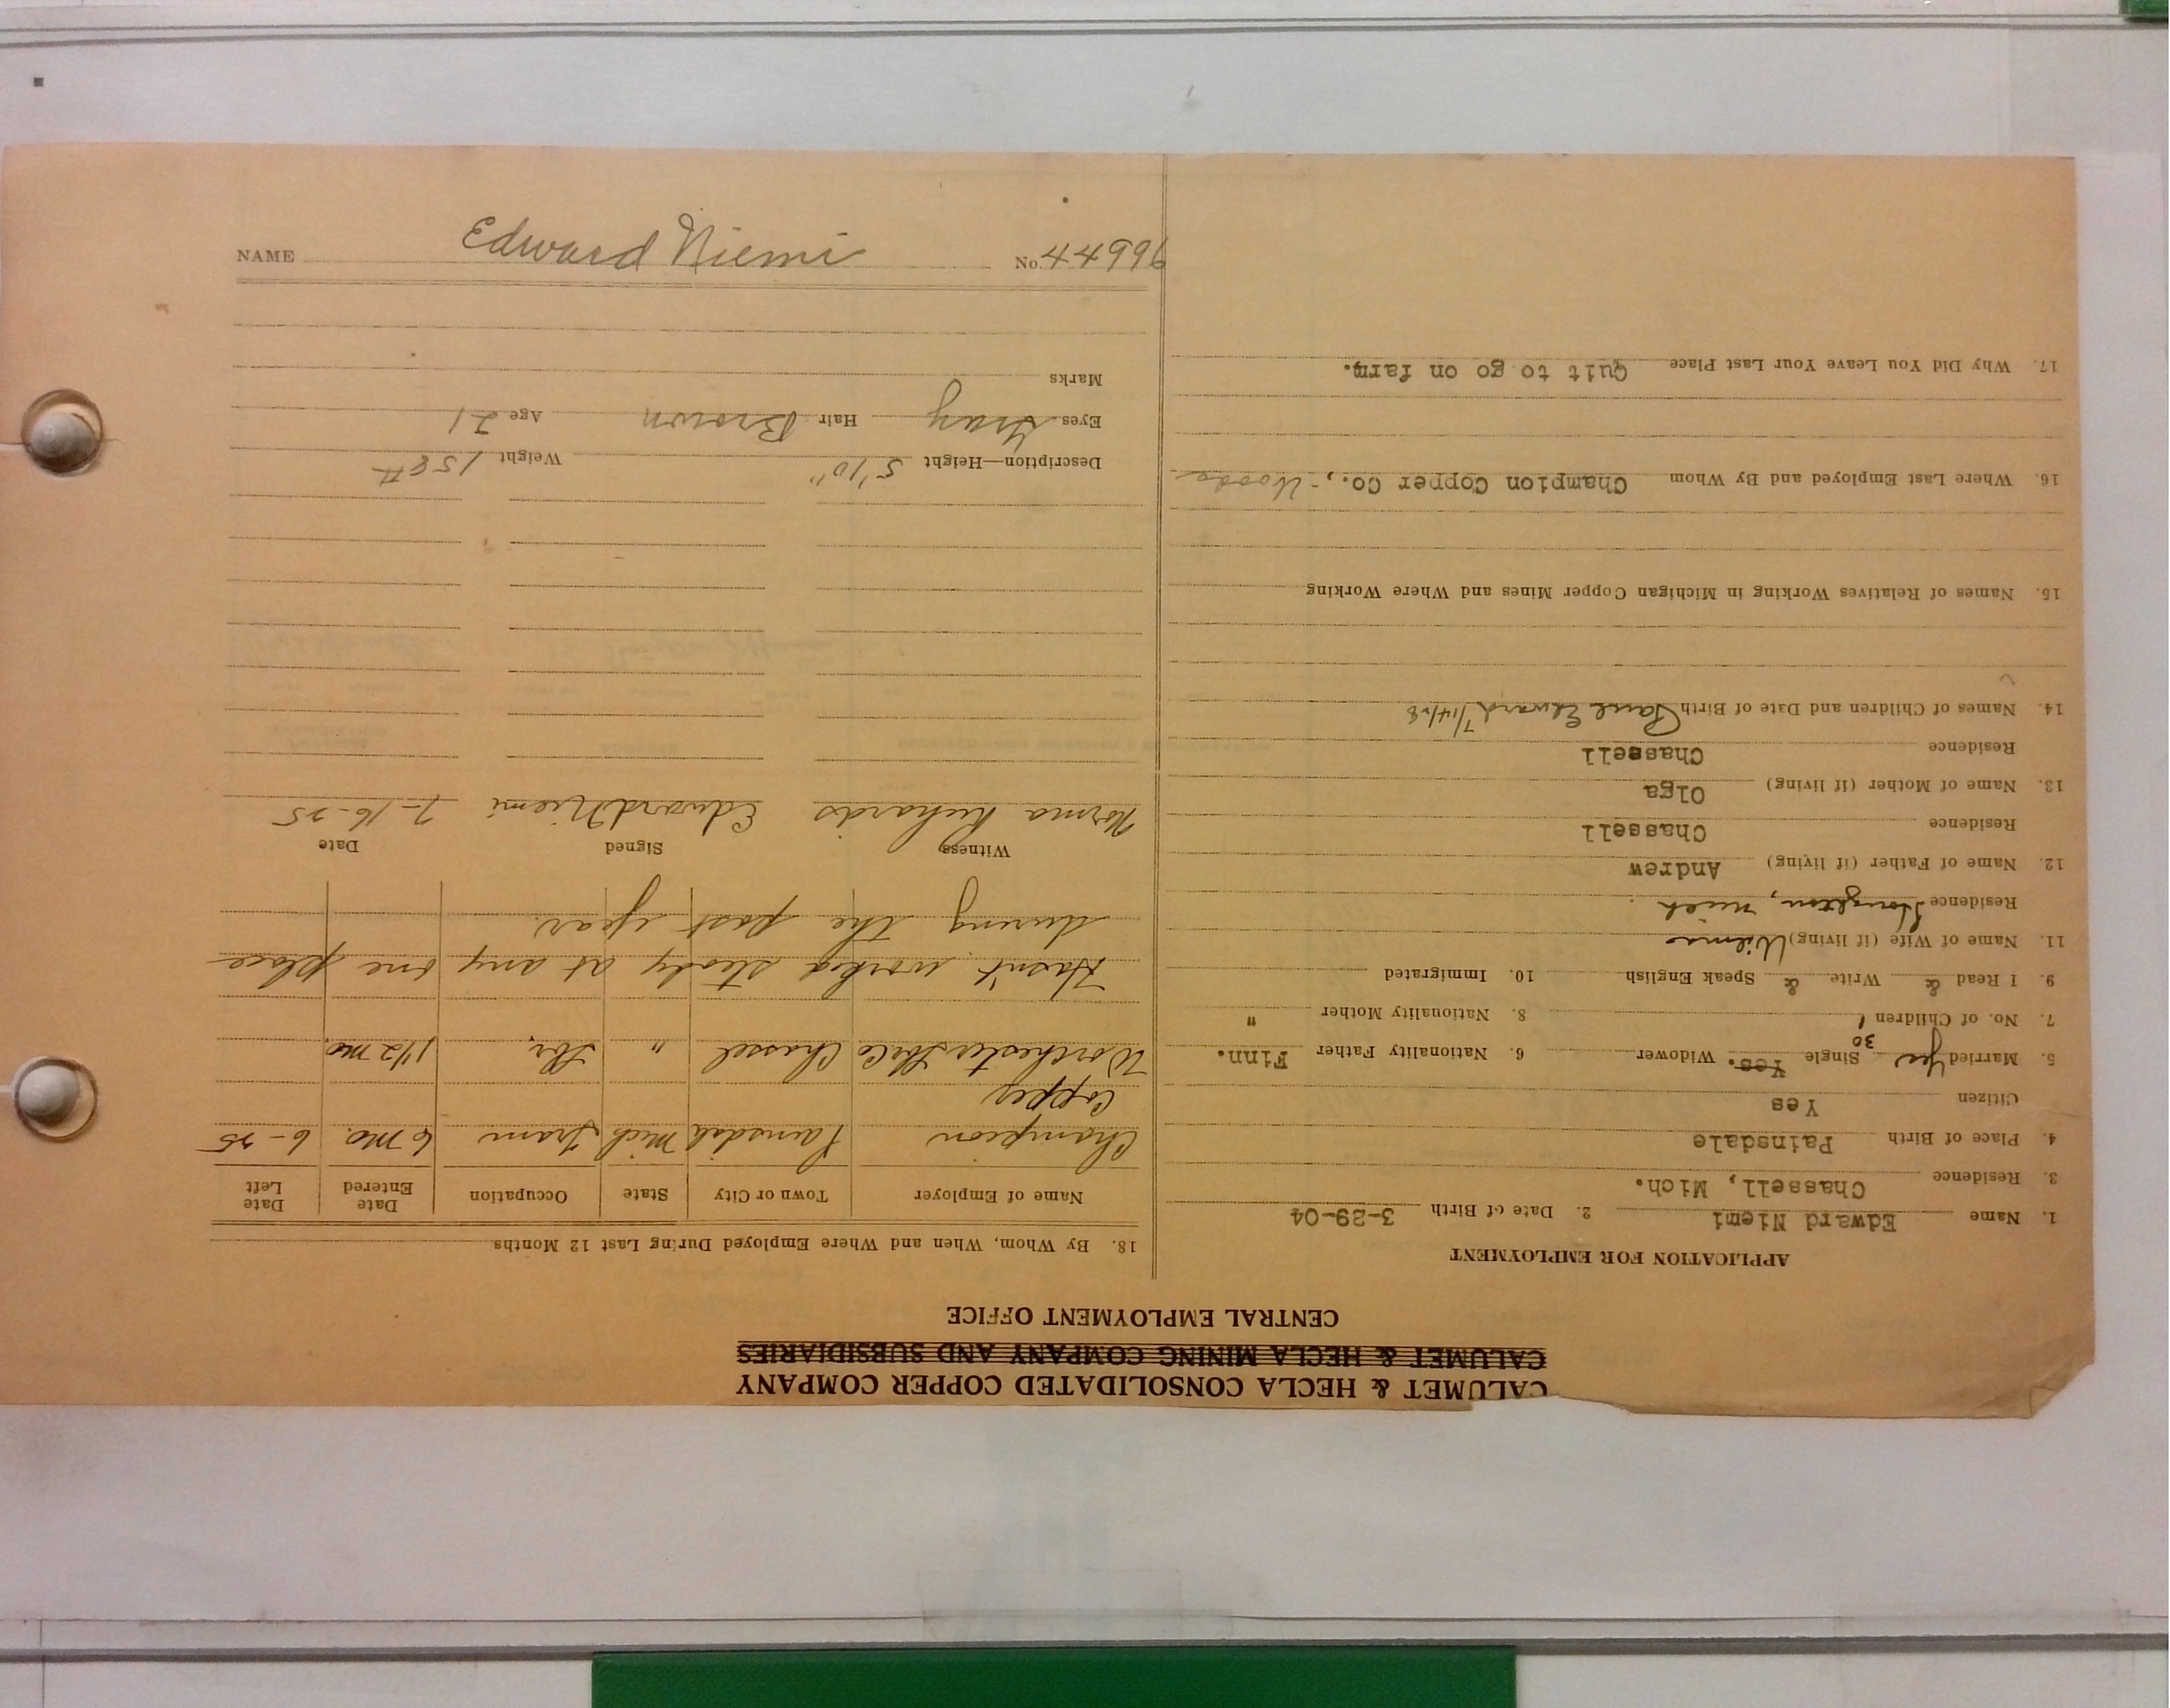 CALUMET & HECLA CONSOLIDATED COPPER COMPANY
CALUMET & HECLA MINING COMPANY AND SUBSIDIARIES
CENTRAL EMPLOYMENT OFFICE
APPLICATION FOR EMPLOYMENT
1. Name Edward Niemi 2. Date of Birth 3-29-04
3. Residence Chassell, Mich.
4. Place of Birth Painsdale
Citizen Yes
5. Married Yes 30 Single Yes. Widower 6. Nationality Father Finn.
7. No. of Children 1 8. Nationality Mother "
9. I Read & Write & Speak English 10. Immigrated
11. Name of Wife (if living) Wilma
Residence Houghton, Mich.
12. Name of Father (if living) Andrew
Residence Chassell
13. Name of Mother (if living) Olga
Residence Chassell
14. Names of Children and Date of Birth Paul Edward 7/14/28
15. Names of Relatives Working in Michigan Copper Mines and Where Working
16. Where Last Employed and By Whom Champion Copper Co., - Woods
17. Why Did You Leave Your Last Place Quit to go on farm.
18. By Whom, When and Where Employed During Last 12 Months
Name of Employer Town or City State Occupation Date Entered Date Left
Champion Painsdale Mich Tram 6 mo. 6-25
Copper
Worchester Chassel " 1 1/2 mo.
Hasn't worked steady at any one place
during the past year.
Witness Signed Date
Norma Richards Edward Niemi 7-16-25
Description—Height 5'10" Weight 158#
Eyes Gray Hair Brown Age 21
Marks
NAME Edward Niemi No. 44996